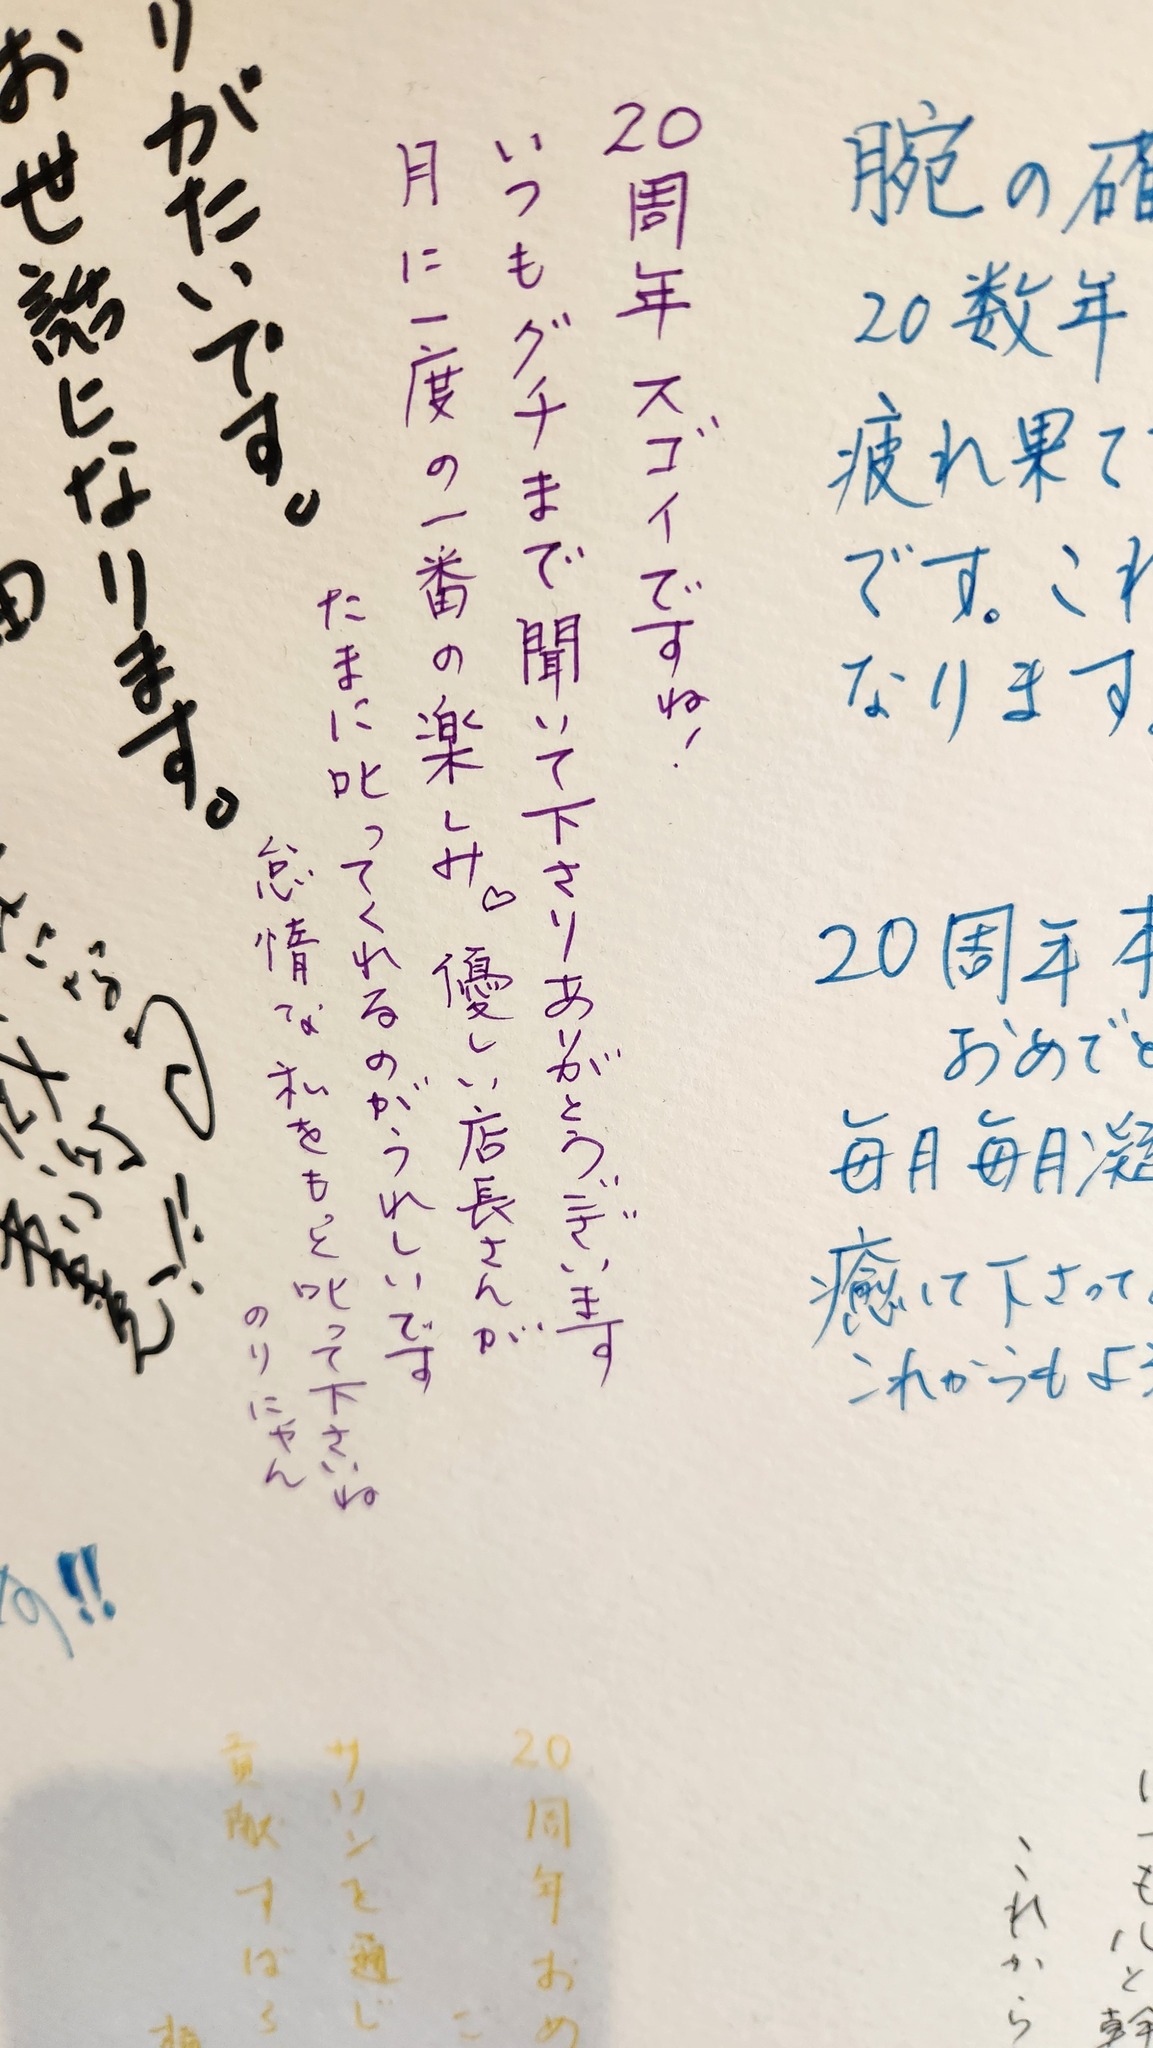 腕の確
20数年
疲れ果て
です。これ
なります。
20周年本
おめでと
毎月毎月凝
癒して下さって
これからもよろ
20周年スゴイですね!
いつもグチまで聞いて下さりありがとうございます
月に一度の一番の楽しみ♡優しい店長さんが
たまに叱ってくれるのがうれしいです
怠惰な私をもっと叱って下さいね
のりにゃん
りがたいです。
お世話になります。
田
す!!
いつもルと幹
これから
20周年おめ
サロンを通じ
貢献すばら